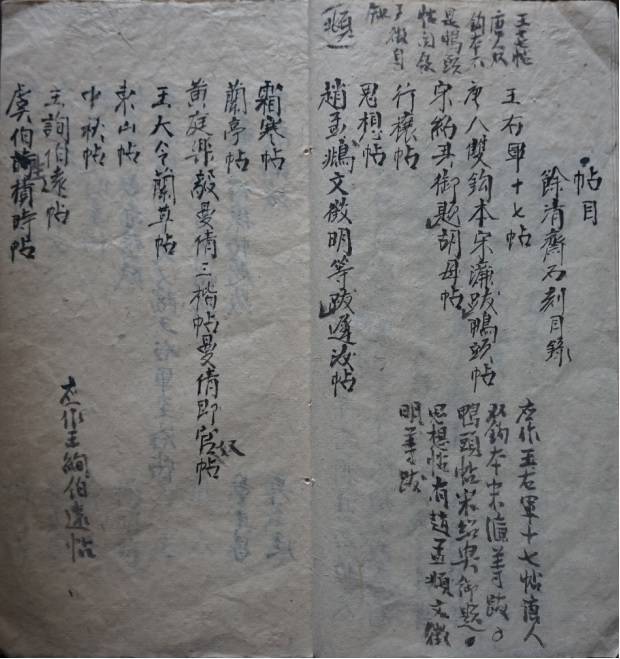 帖目
餘清齋石刻目錄
王右軍十七帖
唐人雙鈎本宋濂跋鴨頭帖
宋紹興御題胡母帖
行穰帖
思想帖
趙孟頫文徵明等跋遲汝帖
應作王右軍十七帖唐人
双钩本宋濂等跋
鸭頭帖宋绍興御题
思想帖有趙孟頫文徵
明等跋
王十七帖
唐人双
鈎本六
是鴨頭
霜寒帖
蘭亭帖
黃庭樂毅曼倩三楷帖曼倩即官帖
奴
王大令蘭草帖
東山帖
中秋帖
王詢伯遠帖
虞伯施積時帖
应作王絢伯遠帖